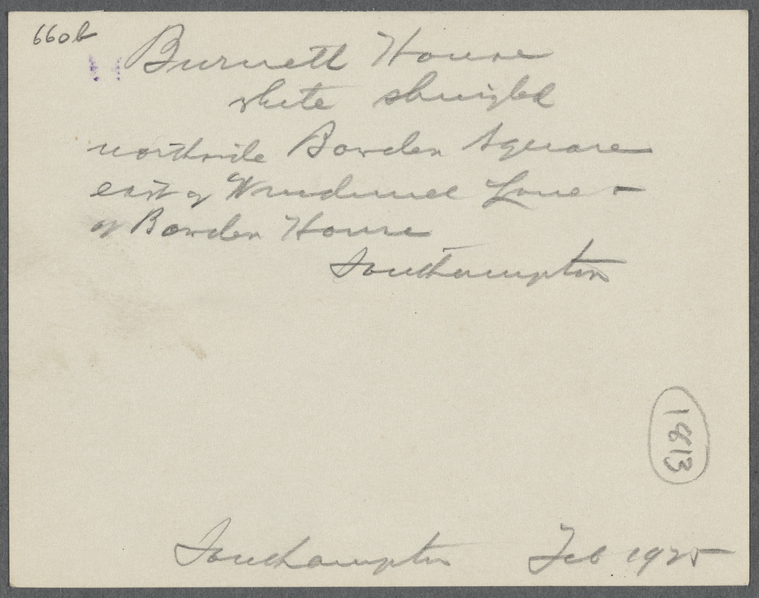 660b
Burnett House
white shingled
northside Bowden Square
east of Windmill Lane &
of Bowden House
Southampton
1813
Southampton Feb 1925